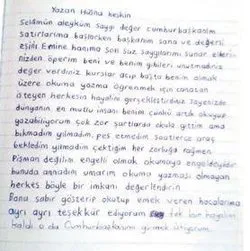 Yazan Hüsna keskin
Selamün aleyküm saygı değer cumhurbaşkanım
satırlarıma başlarken başkanım sana ve değerli
eşin Emine hanıma son suz saygılarımı sunar ellerin
nizden öperim beni ve benim gibileri unutmadınız
değer verdiniz kurslar açıp başta benim olmak
üzere okuma yazma öğrenmek için canatan
isteyen herkesin hayalini gerçekleştirdiniz sayenizde
dünyanın en mutlu insanı benim çünkü artık okuyup
yazabiliyorum çok zor şartlarda okula gittim ama
bıkmadım yılmadım, pes etmedim saatlerce araç
bekledim yılmadım çektiğim her zorluğa rağmen
Pişman değilim engelli olmak okumaya engeldeğildir
bunuda annadım umarım okuma yazması olmayan
herkes böyle bir imkanı değerlendirir
Bana sabır gösterip okutup emek veren hocalarıma
ayrı ayrı teşekkür ediyorum tek bir hayalim
kaldı o da Cumhurbaşkanımı görmek istiyorum